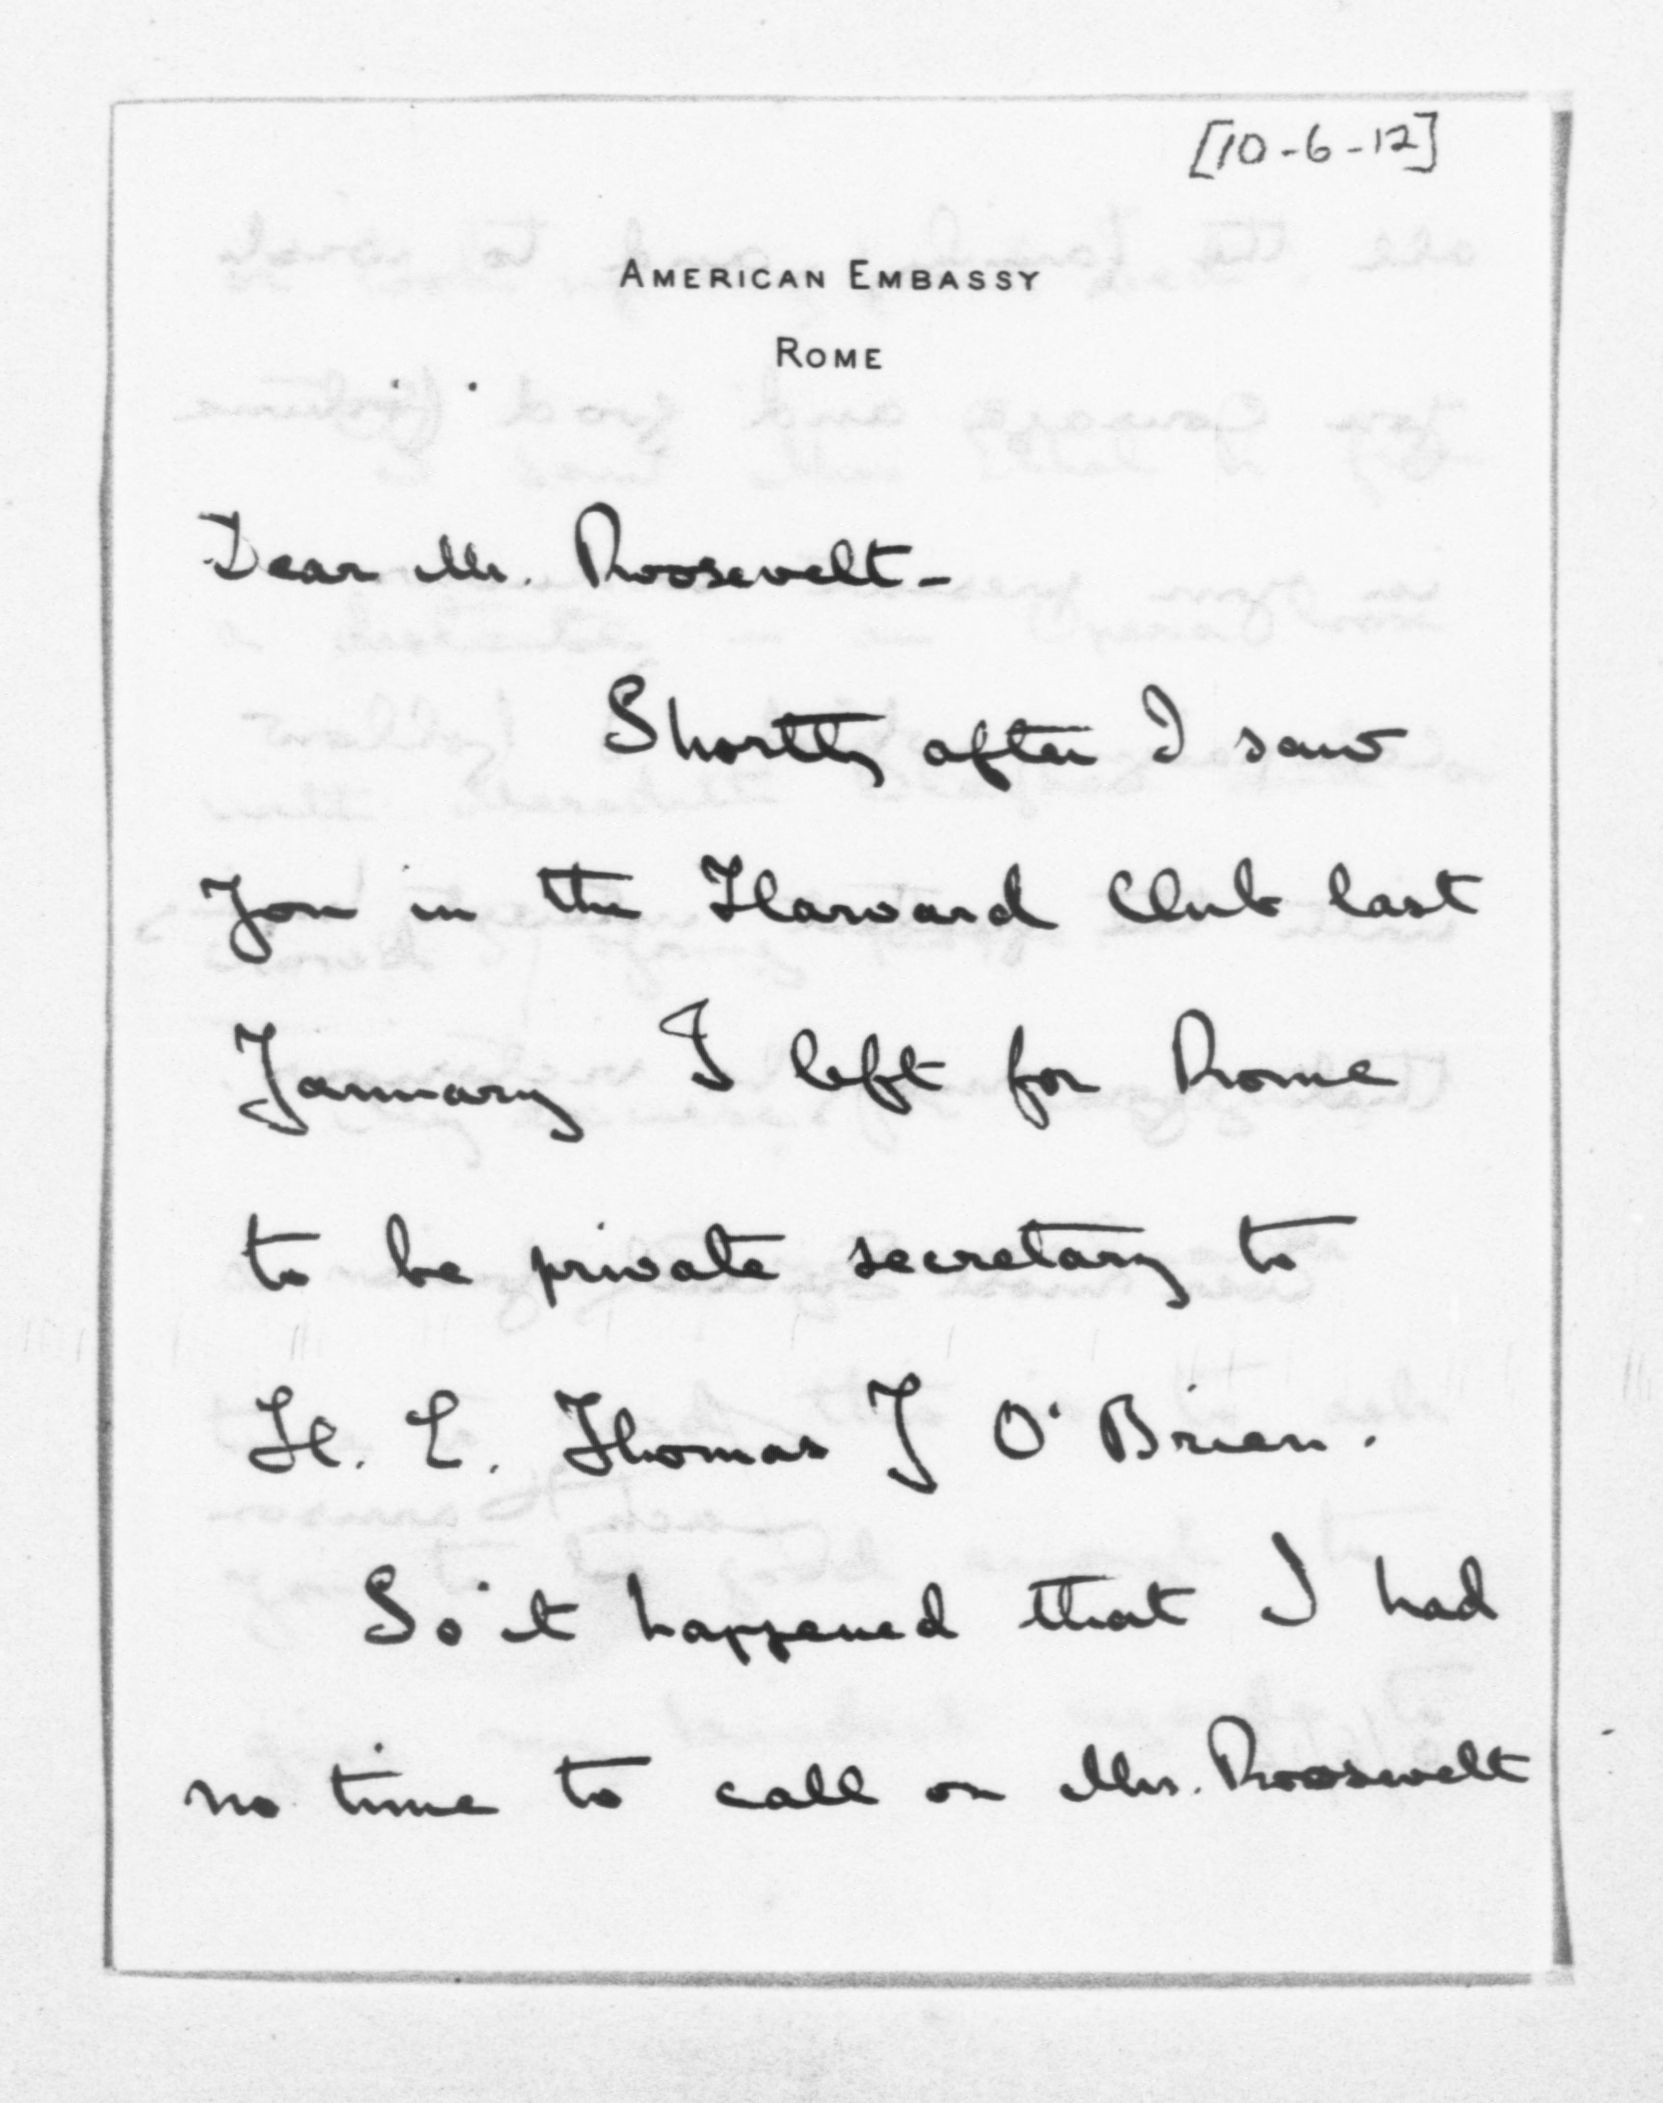 [10-6-12]
AMERICAN EMBASSY
ROME
Dear Mr. Roosevelt-
Shortly after I saw
you in the Harvard Club last
January I left for Rome
to be private secretary to
H. E. Thomas J O'Brien.
So it happened that I had
no time to call on Mrs. Roosevelt